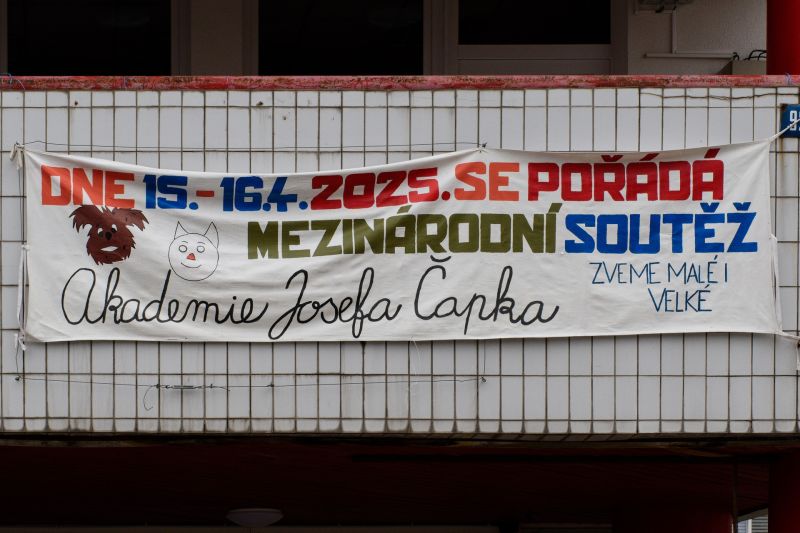 DNE 15.-16.4.2025.SE POŘÁDÁ
MEZINÁRODNÍ SOUTĚŽ
Akademie Josefa Čapka
ZVEME MALÉ I
VELKÉ